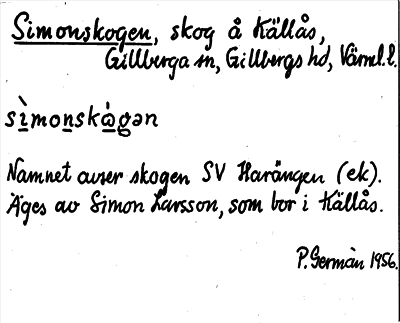 Simonskogen, skog å Källås,
Gillberga sn, Gillbergs hd, Värml. l.
sìmonskàgən
Namnet avser skogen SV Harängen (ek).
Äges av Simon Larsson, som bor i Källås.
P. Germàn 1956.